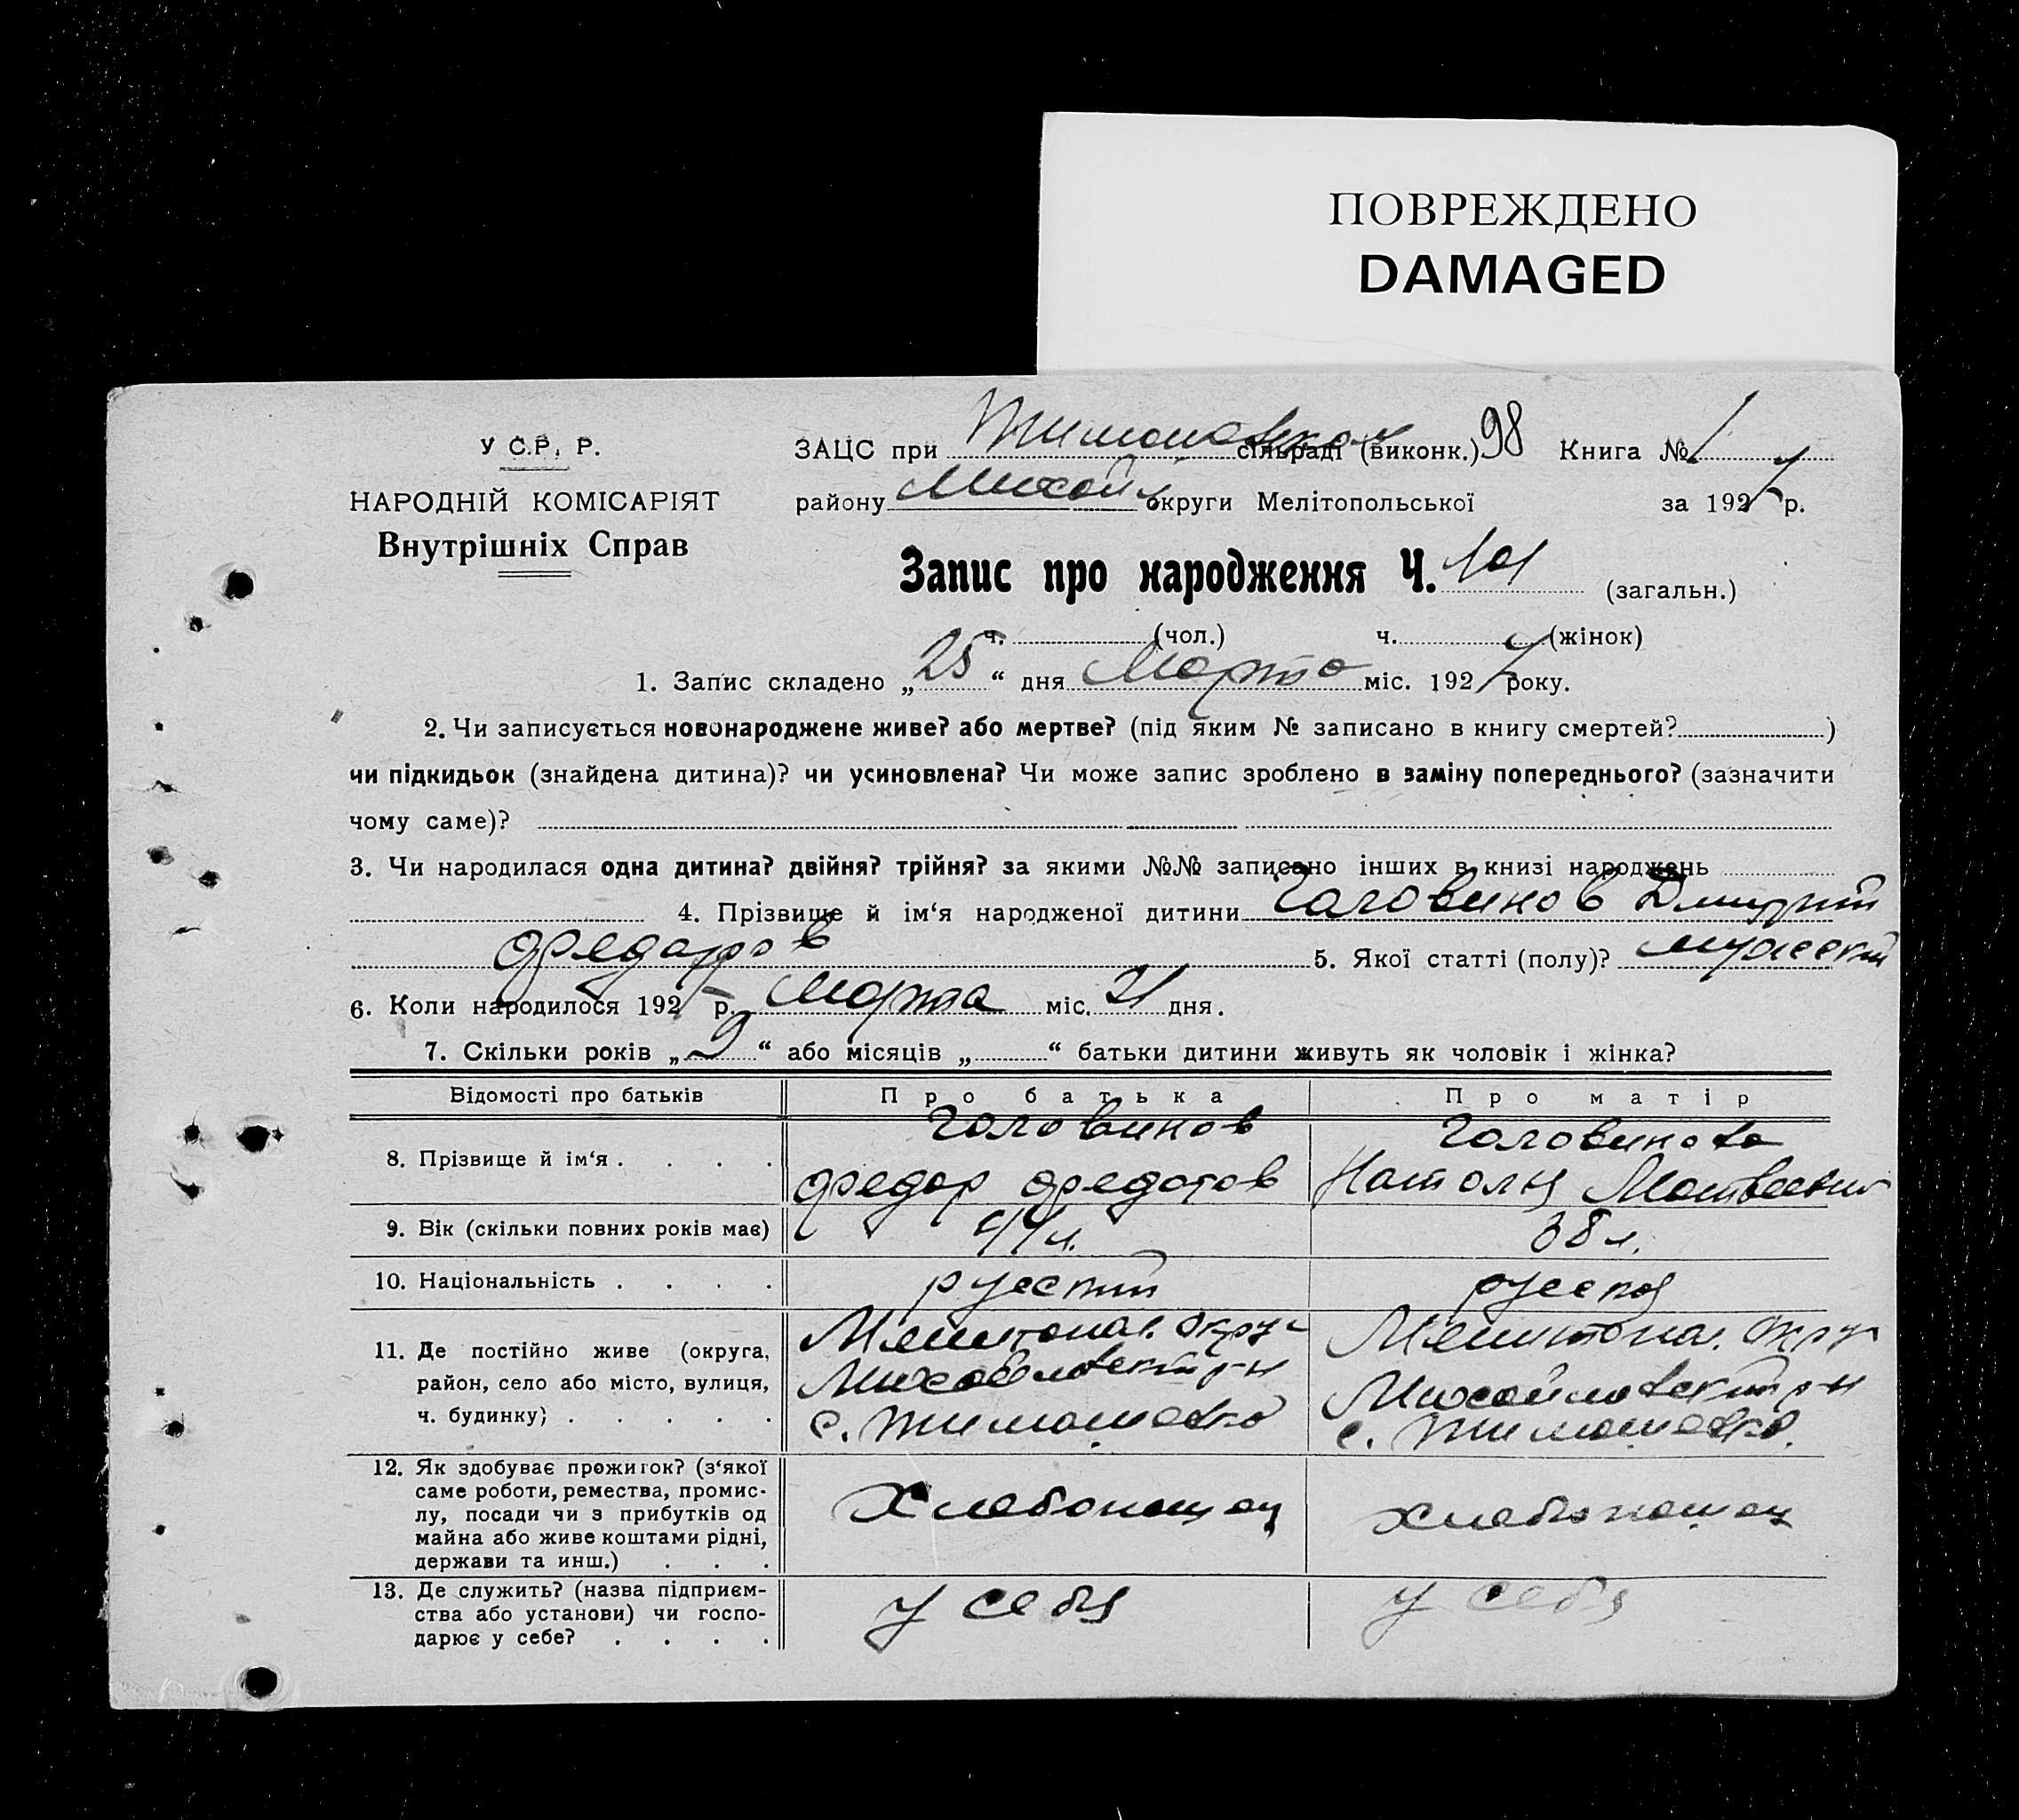 ПОВРЕЖДЕНО
DAMAGED
У С.Р. Р.
НАРОДНІЙ КОМІСАРІЯТ
Внутрішніх Справ
ЗАЦС при сільраді (виконк.) 98 Книга № 1
району Михайл округи Мелітопольської за 1927 р.
Запис про народження Ч. 101 (загальн.)
ч. (чол.) ч. (жінок)
1. Запис складено „25“ дня Марта міс. 1927 року.
2. Чи записується новонароджене живе? або мертве? (під яким № записано в книгу смертей? )
чи підкидьок (знайдена дитина)? чи усиновлена? Чи може запис зроблено в заміну попереднього? (зазначити
чому саме)?
3. Чи народилася одна дитина? двійня? трійня? за якими №№ записано інших в книзі народжень
4. Прізвище й ім‘я народженої дитини Головинов Дмитрий
Федоров 5. Якої статті (полу)? мужский
6. Коли народилося 1927 р. Марта міс. 21 дня.
7. Скільки років „9“ або місяців „ “ батьки дитини живуть як чоловік і жінка?
Відомості про батьків Про батька Про матір
8. Прізвище й ім‘я . . . . Головинов Федор Федотов Головинова Наталия
9. Вік (скільки повних років має) 44 л. 38 л.
10. Національність . . . . русский русская
11. Де постійно живе (округа,
район, село або місто, вулиця,
ч. будинку) . . . . .
Мелитопол. округ
Михайловский р-н
с. Тимошевка
Мелитопол. окру
Михайловский р-н
с. Тимошевка
12. Як здобуває прожиток? (з‘якої
саме роботи, ремества, промис-
лу, посади чи з прибутків од
майна або живе коштами рідні,
держави та инш.) . . .
Хлебопашец
хлебопашец
13. Де служить? (назва підприєм-
ства або установи) чи госпо-
дарює у себе? . . . .
у себя
у себя